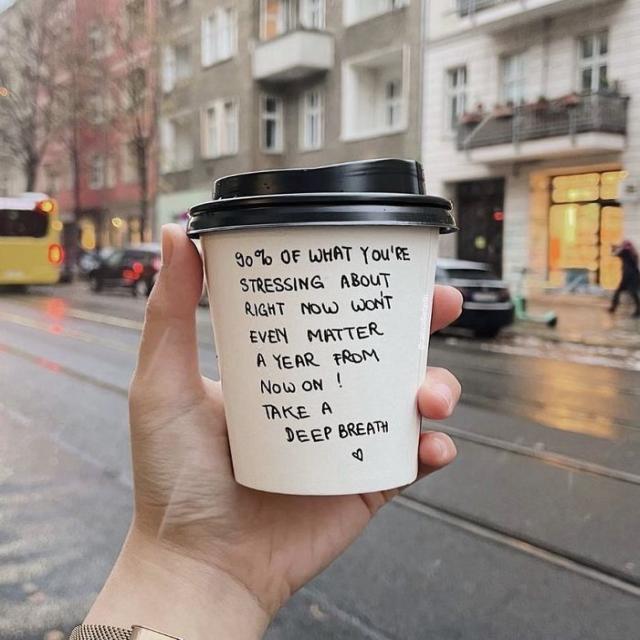 90% OF WHAT YOU'RE
STRESSING ABOUT
RIGHT NOW WON'T
EVEN MATTER
A YEAR FROM
NOW ON !
TAKE A
DEEP BREATH
♡